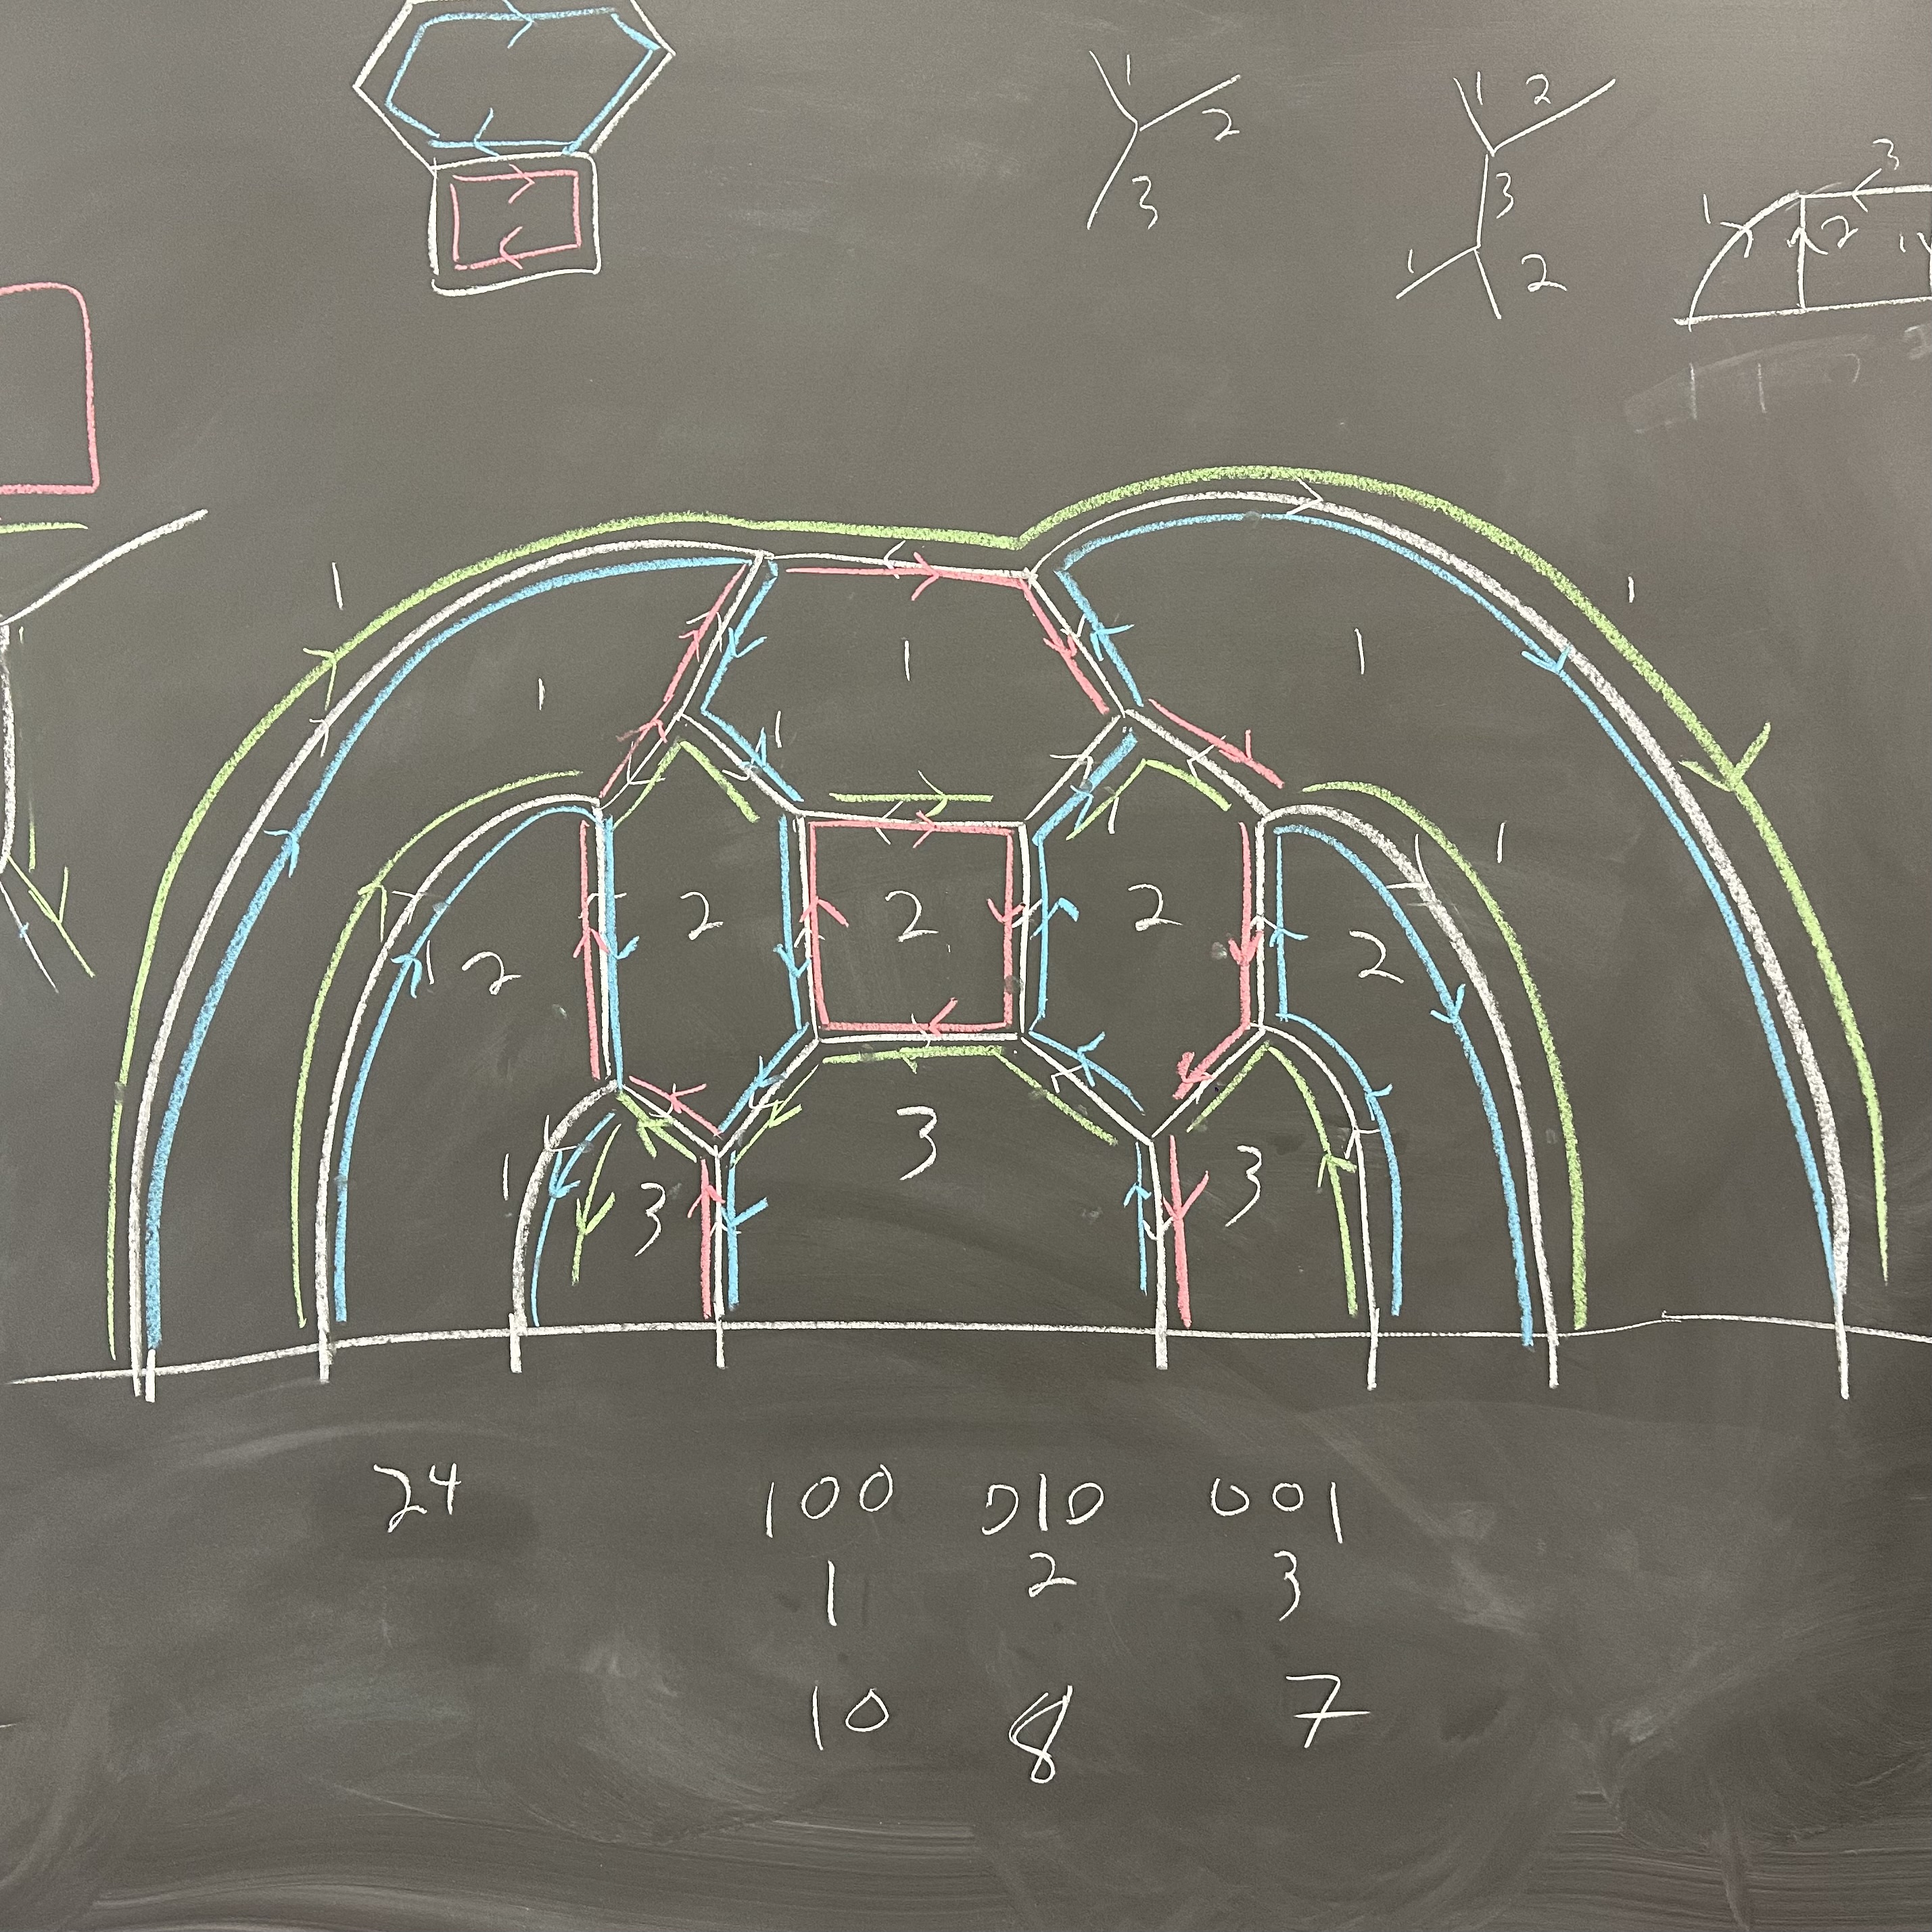 1 2
3
1 2
3
1 2
3
1 2
1 1
1 1 1
1
1 1
2 2 2
2 2
1
3
1 3 3
24 100 010 001
1 2 3
10 8 7